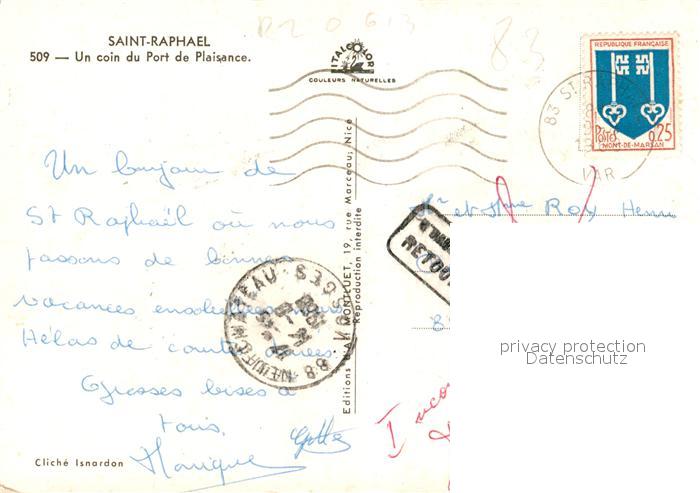 SAINT-RAPHAEL
509 — Un coin du Port de Plaisance.
ITALCOLOR
COULEURS NATURELLES
REPUBLIQUE FRANÇAISE
POSTES 0,25
MONT-DE-MARSAN
83 ST
VAR
83
Un bonjour de
St Raphaël où nous
passons de bonnes
vacances ensoleillées mais
Hélas de courte durées.
Grosses bises à
tous.
Monique
Mr et Mme Roy Henri
RETOUR
NEUFCHATEAU
88
VOSGES
Editions d'Art MONTLUET, 19, rue Marceau, Nice
Reproduction interdite
privacy protection
Datenschutz
Cliché Isnardon